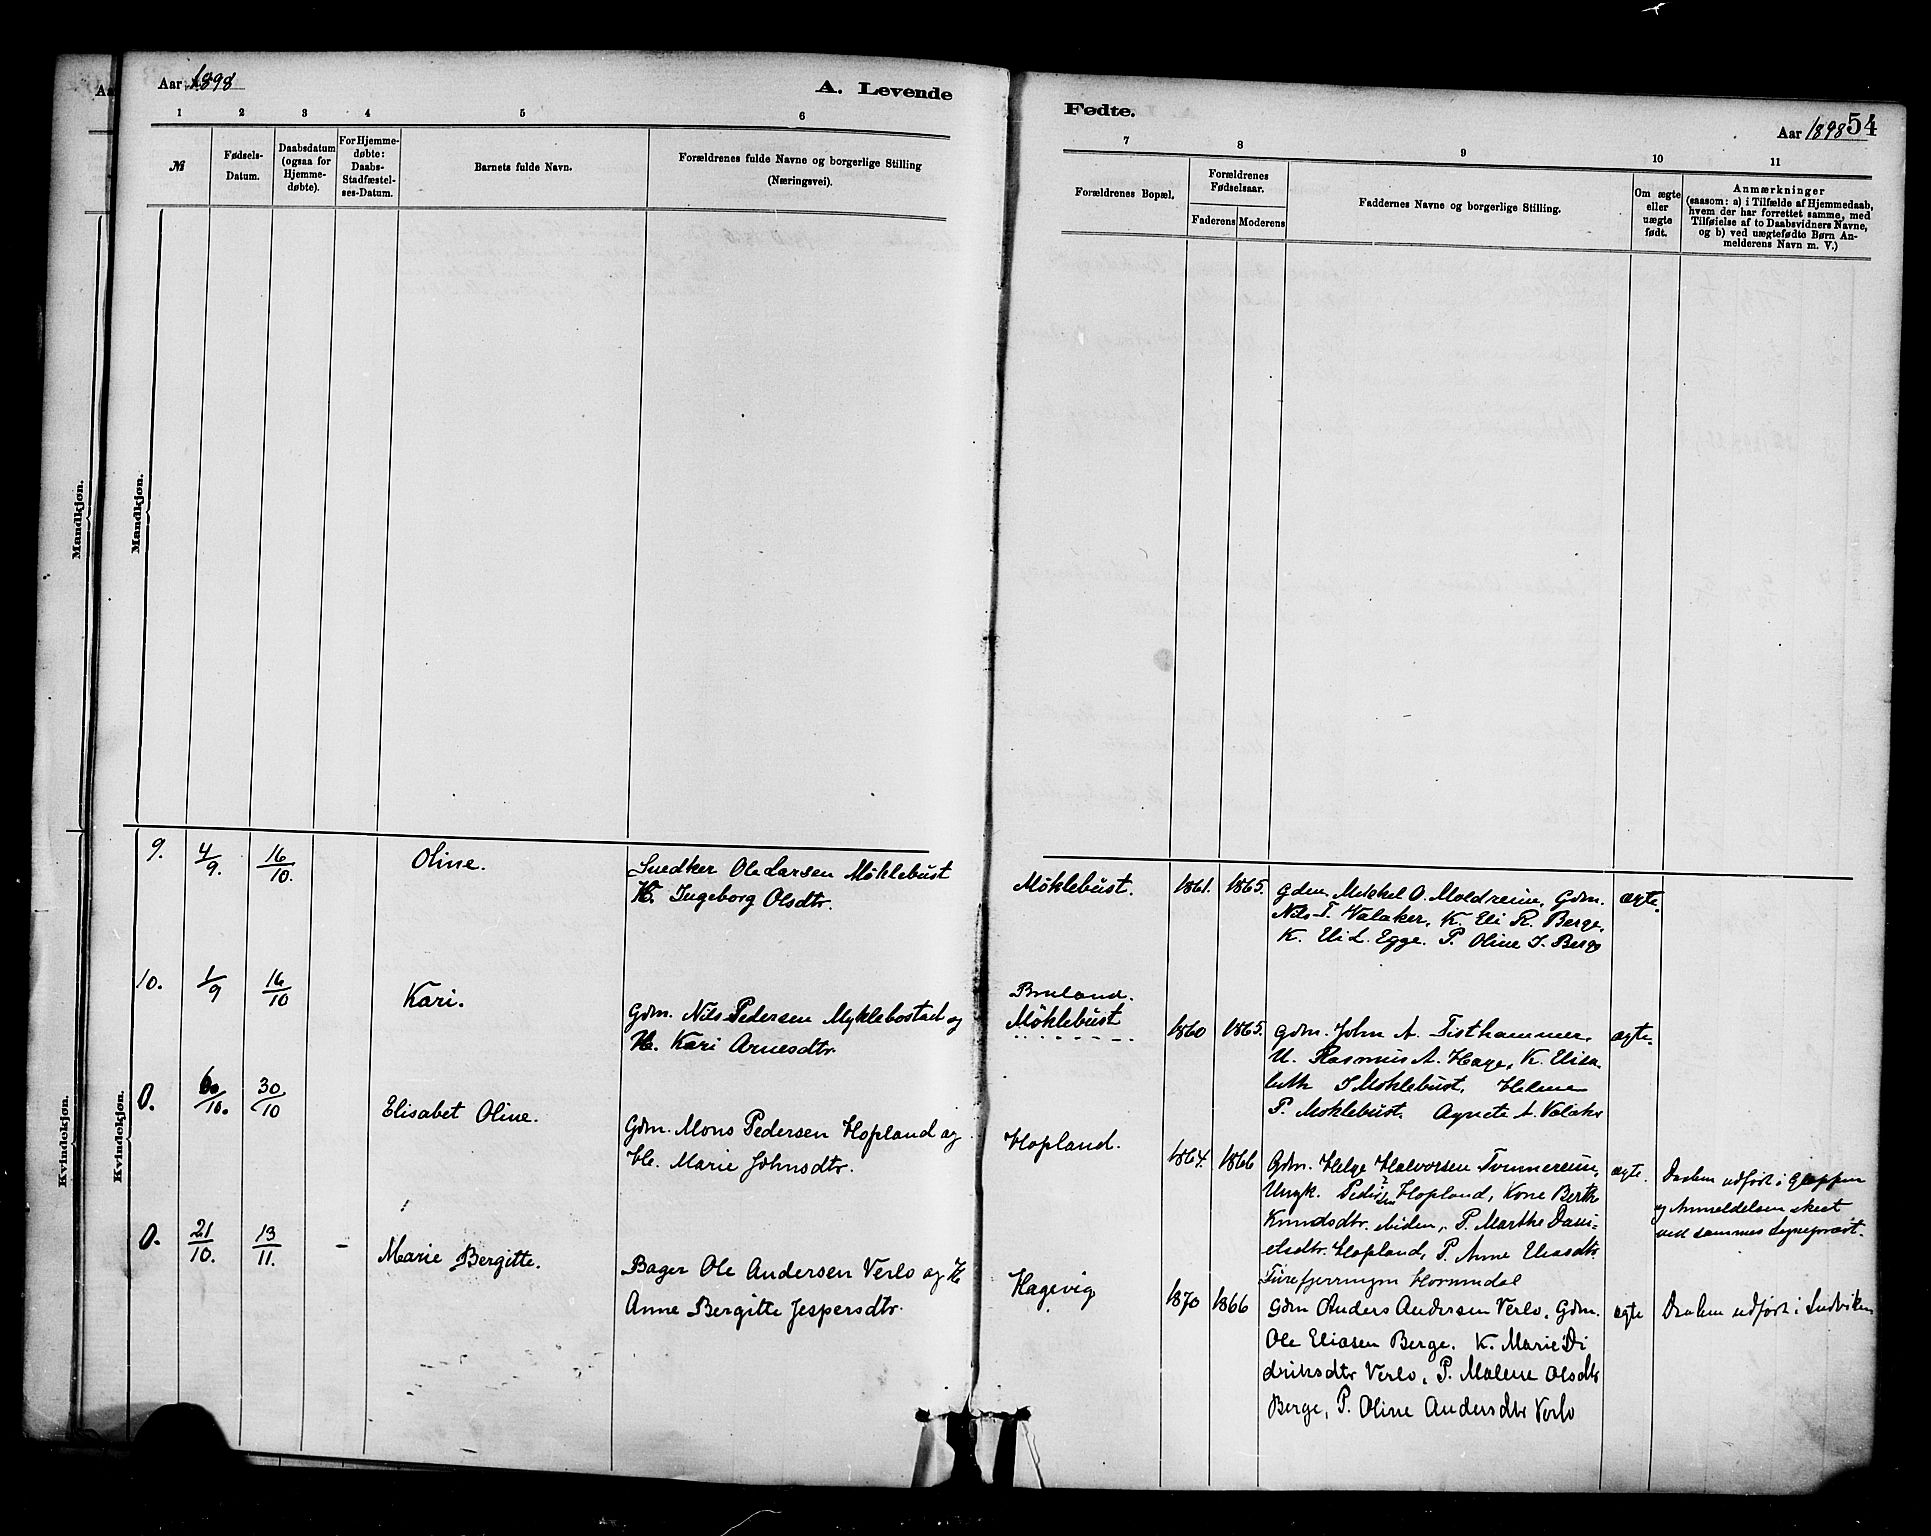 Aar 1898
A. Levende
Fødte.
Aar 1898 54
1 2 3 4 5 6
7 8 9 10 11
№
Fødsels-
Datum.
Daabsdatum
(ogsaa for
Hjemme-
døbte).
For Hjemme-
døbte:
Daabs-
Stadfæstel-
ses-Datum.
Barnets fulde Navn.
Forældrenes fulde Navne og borgerlige Stilling
(Næringsvei).
Forældrenes Bopæl.
Forældrenes
Fødselsaar.
Faderens Moderens
Faddernes Navne og borgerlige Stilling.
Om ægte
eller
uægte
født.
Anmærkninger
(saasom: a) i Tilfælde af Hjemmedaab,
hvem der har forrettet samme, med
Tilføielse af to Daabsvidners Navne,
og b) ved uægtefødte Børn An-
melderens Navn m. V.)
Mandkjøn.
Mandkjøn.
Kvindekjøn.
Kvindekjøn.
9. 4/9. 16/10. Oline.
Snedker Ole Larsen Möklebust
H. Ingeborg Olsdtr.
Möklebust. 1861. 1865.
Gdm. Mikkel O. Moldreim, Gdm.
Nils T. Valaker, K. Eli R. Berge,
K. Eli L. Egge. P. Oline I. Berge
ægte.
10. 1/9 16/10 Kari.
Gdm. Nils Pedersen Myklebostad og
H. Kari Arnesdtr.
Bruland.
Möklebust 1860 1865.
Gdm. John A. Tisthammer,
U. Rasmus A. Hage, K. Elisa-
beth I Möklebust, Helene
P. Moklebust. Agnete A. Valaker
ægte.
0. 6/10. 30/10 Elisabet Oline.
Gdm. Mons Pedersen Hopland og
H. Marie Johnsdtr.
Hopland. 1864. 1866
Gdm. Helge Halvorsen Tvinnereim,
Ungk. Peder Hopland, Kone Berthe
Knudsdtr. ibiden, P. Marthe Dani-
elsdtr. Hopland, P. Anne Eliasdtr
Hornindal
ægte.
Daaben udført i Gloppen
og Anmeldelsen skeet
ved sammes Sogneprest.
0. 21/10. 13/11. - Marie Bergitte.
Bager Ole Andersen Verlo og H
Anne Bergitte Jespersdtr.
Hagevig 1870 1866
Gdm Anders Andersen Verlo, Gdm.
Ole Eliasen Berge. K. Marie Di
driksdtr Verlo, P. Malene Olsdtr
Berge, P. Oline Andersdtr Verlo
ægte
Daaben udført i Indviken